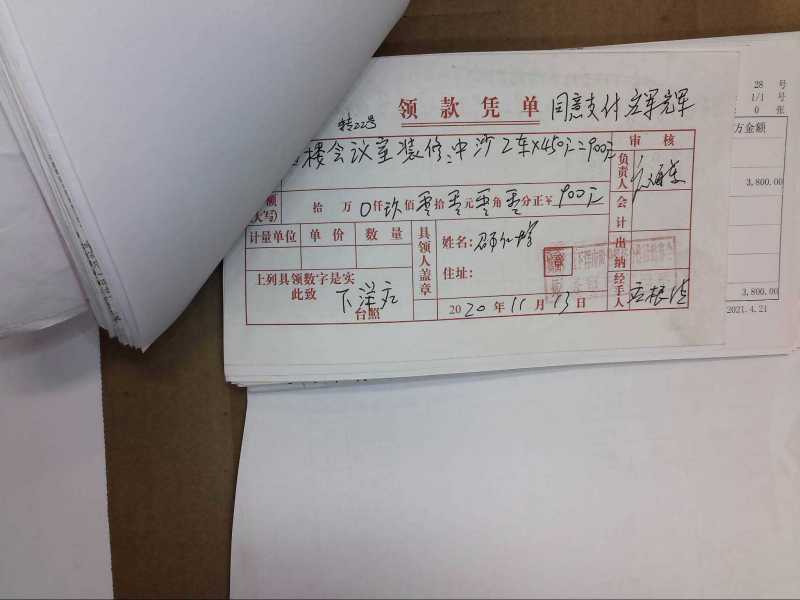 28 号
1/1 号
0 张
方金额
3,800.00
3,800.00
2021.4.21
转22号
领款凭单
同意支付
楼会议室装修:中沙2车×450元=900元
审核
负责人
会计
出纳
经手人
大写)
拾 万 0仟玖佰零拾零元零角零分正¥ 900元
计量单位 单价 数量
具领人盖章
姓名:
住址:
上列具领数字是实
此致
下洋应
台照
2020年11月13日
应根法